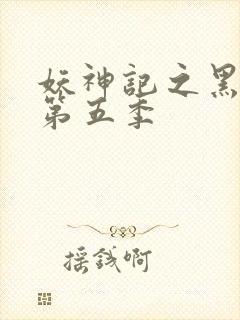 妖神記之黑
第五季
摇錢啊